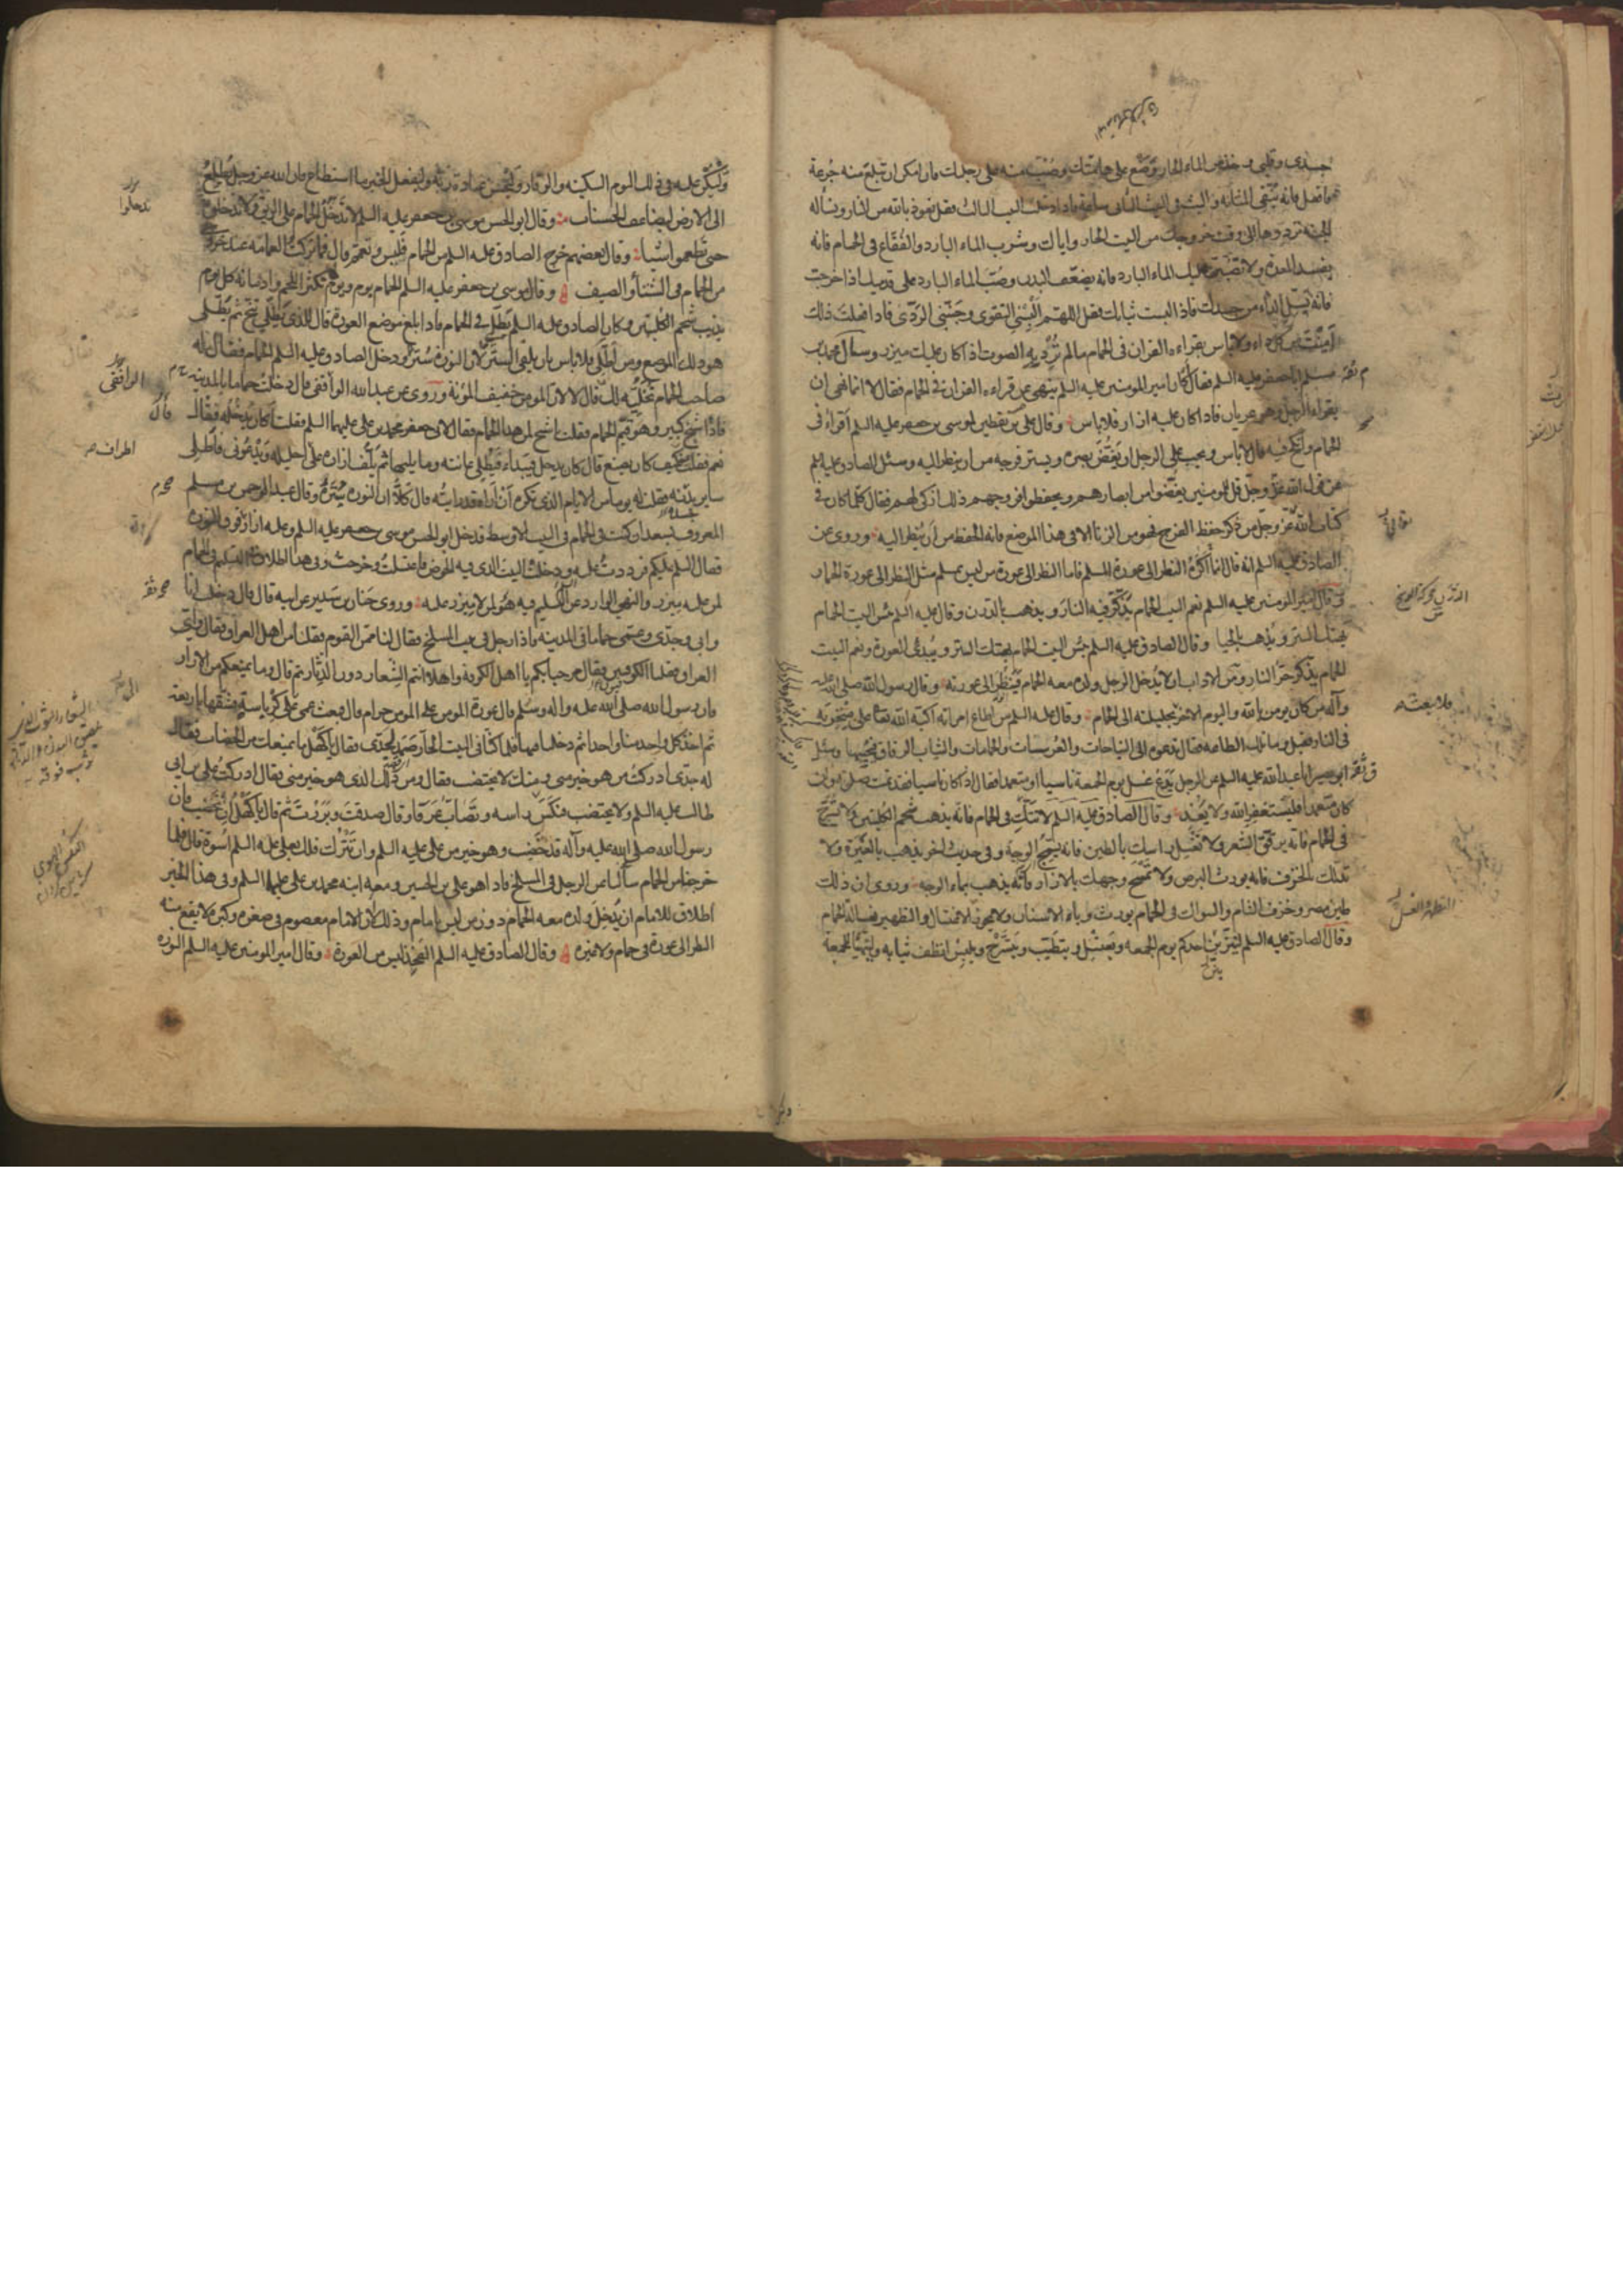 جسدى وقلبى وخذ من الماء الحار وضعه على هامتك وصب منه على رجليك فان امكن ان تبلع منه جرعة
فافعل فانه ينقى المثانة والبث فى البيت الثانى ساعة فاذا دخلت البيت الثالث فقل نعوذ بالله من النار ونسأله
الجنه ترددها الى وقت خروجك من البيت الحار واياك وشرب الماء البارد والفقاع فى الحمام فانه
يفسد المعدة ولا تصبن عليك الماء البارد فانه يضعف البدن وصب الماء البارد على قدميك اذا خرجت
فانه يسل الداء من جسدك فاذا لبست ثيابك فقل اللهم البسنى التقوى وجنبنى الردى فاذا فعلت ذلك
امنت من كل داء ولا باس بقراءه القران فى الحمام مالم ترد به الصوت اذا كان عليك ميزر وسال محمد بن
مسلم ابا جعفر عليه السلم فقال اكان امير المومنين عليه السلم ينهى عن قراءه القران فى الحمام فقال لا انما نهى ان
يقراء الرجل وهو عريان فاذا كان عليه ازار فلا باس وقال على بن يقطين لموسى بن جعفر عليه السلم أقراء فى
الحمام وانكح فيه قال لا باس ويجب على الرجل ان يغض بصره ويستر فرجه من ان ينظر اليه وسئل الصادق عليه السلم
عن قول الله عز وجل قل للمومنين يغضوا من ابصارهم ويحفظوا فروجهم ذلك ازكى لهم فقال كلما كان فى
كتاب الله عز وجل من ذكر حفظ الفرج فهو من الزنا الا فى هذا الموضع فانه الحفظ من ان ينظر اليه وروى عن
الصادق عليه السلم انه قال انما اكره النظر الى عورة المسلم فاما النظر الى عورة من ليس بمسلم مثل النظر الى عورة الحمار
قال امير المومنين عليه السلم نعم البيت الحمام يذكر فيه النار ويذهب بالدرن وقال عليه السلم بئس البيت الحمام
يهتك الستر ويذهب بالحيا وقال الصادق عليه السلم بئس البيت الحمام يهتك الستر ويبدى العورة ونعم البيت
الحمام يذكر حر النار ومن الاداب ان لا يدخل الرجل ولده معه الحمام فينظر الى عورته وقال رسول الله صلى الله عليه
وآله من كان يومن بالله واليوم الاخر فلا يبعث بحليلته الى الحمام وقال عليه السلم من اطاع امراته اكبه الله تعا على منخريه
فى النار فقيل وما تلك الطاعه فقال تدعوه الى النياحات والعرسات والحمامات والثياب الرقاق فيجيبها وسئل
ابو بصير ابا عبد الله عليه السلم عن الرجل يدع غسل يوم الجمعة ناسيا او متعمدا فقال اذا كان ناسيا فقد تمت صلوته وان
كان متعمدا فليستغفر الله ولا يعد وقال الصادق عليه السلم لا تتك فى الحمام فانه يذهب شحم الكليتين ولا تسرح
فى الحمام فانه يرقق الشعر ولا تغسل راسك بالطين فانه يسمج الوجه وفى حديث اخر يذهب بالغيرة ولا
تدلك بالخزف فانه يورث البرص ولا تمسح وجهك بالازار فانه يذهب بماء الوجه وروى ان ذلك
طين مصر وخزف الشام والسواك فى الحمام يورث وباء الاسنان ولا يجوز الاغتسال والتطهير بغسالة الحمام
وقال الصادق عليه السلم ليتزين احدكم يوم الجمعه ويغتسل ويتطيب ويتسرح ويلبس انظف ثيابه وليتهيا للجمعة
وليكن عليه فى ذلك اليوم السكينه والوقار وليحسن عبادة ربه وليفعل الخير ما استطاع فان الله عز وجل يطلع
الى الارض ليضاعف الحسنات وقال ابو الحسن موسى بن جعفر عليه السلم لا تدخل الحمام على الريق ولا تدخلوه
حتى تطعموا شيئا وقال بعضهم خرج الصادق عليه السلم من الحمام فلبس وتعمم قال فما تركت العمامه عند خروجى
من الحمام فى الشتاء والصيف وقال موسى بن جعفر عليه السلم الحمام يوم ويوم لا يكثر اللحم وادمانه كل يوم
يذيب شحم الكليتين وكان الصادق عليه السلم يطلى فى الحمام فاذا بلغ موضع العورة قال للذى يطلى تنح ثم يطلى
هو ذلك الموضع ومن اطلى فلا باس بان يلقى الستر لان النورة سترة ودخل الصادق عليه السلم الحمام فقال له
صاحب الحمام نخليه لك قال لا لان المومن خفيف المؤنة وروى عن عبد الله الوافقى قال دخلت حماما بالمدينه
فاذا شيخ كبير وهو قيم الحمام فقلت يا شيخ لمن هذا الحمام فقال لابى جعفر محمد بن على عليهما السلم فقلت اكان يدخله فقال
نعم فقلت كيف كان يصنع قال كان يدخل فيبداء فيطلى عانته وما يليها ثم يلف ازاره على احليله ويدعونى فاطلى
ساير بدنه فقلت له يوما من الايام الذى تكره ان اراه قد رايته قال كلا ان النورة سترة وقال عبد الرحمن بن مسلم
المعروف بسعدان كنت فى الحمام فى البيت الاوسط فدخل ابو الحسن موسى بن جعفر عليه السلم وعليه ازار فوق النورة
فقال السلم عليكم فرددت عليه ودخلت البيت الذى فيه الحوض فاغتسلت وخرجت وفى هذا اطلاق فى التسليم فى الحمام
لمن عليه ميزر والنهى الوارد عن التسليم فيه هو لمن لا ميزر عليه وروى حنان بن سدير عن ابيه قال قال دخلت انا
وابى وجدى وعمى حماما فى المدينه فاذا رجل فى بيت المسلخ فقال لنا ممن القوم فقلنا من اهل العراق فقال واى
العراق فقلنا الكوفيين فقال مرحبا بكم يا اهل الكوفه واهلا انتم الشعار دون الدثار ثم قال وما يمنعكم من الازار
فان رسول الله صلى الله عليه واله وسلم قال عورة المومن على المومن حرام قال فبعث عمى الى كرباسة فشقها باربعة
ثم اخذ كل واحد منا واحدا ثم دخلنا فيها فلما كنا فى البيت الحار صمد لجدى فقال يا كهل ما يمنعك من الخضاب فقال
له جدى ادركت من هو خير منى ومنك لا يختضب فقال ومن ذلك الذى هو خير منى فقال ادركت على بن ابى
طالب عليه السلم ولا يختضب فنكس راسه وتصاب عرقا وقال صدقت وبررت ثم قال يا كهل ان تختضب فان
رسول الله صلى الله عليه وآله قد خضب وهو خير من على عليه السلم وان تترك فلك بعلى عليه السلم اسوة قال فلما
خرجنا من الحمام سألنا عن الرجل فى المسلخ فاذا هو على بن الحسين ومعه ابنه محمد بن على عليهما السلم وفى هذا الخبر
اطلاق للامام ان يدخل ولده معه الحمام دون من ليس بامام وذلك لان الامام معصوم فى صغره وكبره لا يقع منه
النظر الى عورة فى حمام ولا غيره وقال الصادق عليه السلم الفخذ ليس من العورة وقال امير المومنين عليه السلم النورة